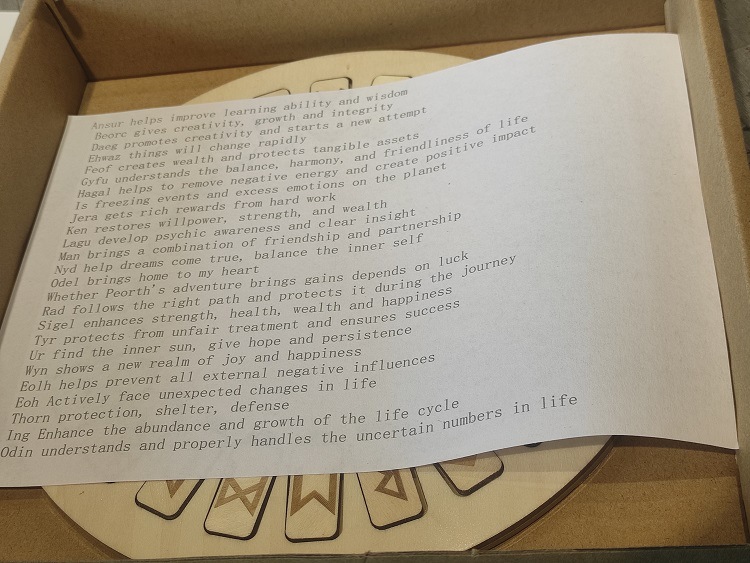 Ansur helps improve learning ability and wisdom
Beorc gives creativity, growth and integrity
Daeg promotes creativity and starts a new attempt
Ehwaz things will change rapidly
Feof creates wealth and protects tangible assets
Gyfu understands the balance, harmony, and friendliness of life
Hagal helps to remove negative energy and create positive impact
Is freezing events and excess emotions on the planet
Jera gets rich rewards from hard work
Ken restores willpower, strength, and wealth
Lagu develop psychic awareness and clear insight
Man brings a combination of friendship and partnership
Nyd help dreams come true, balance the inner self
Odel brings home to my heart
Whether Peorth's adventure brings gains depends on luck
Rad follows the right path and protects it during the journey
Sigel enhances strength, health, wealth and happiness
Tyr protects from unfair treatment and ensures success
Ur find the inner sun, give hope and persistence
Wyn shows a new realm of joy and happiness
Eolh helps prevent all external negative influences
Eoh Actively face unexpected changes in life
Thorn protection, shelter, defense
Ing Enhance the abundance and growth of the life cycle
Odin understands and properly handles the uncertain numbers in life